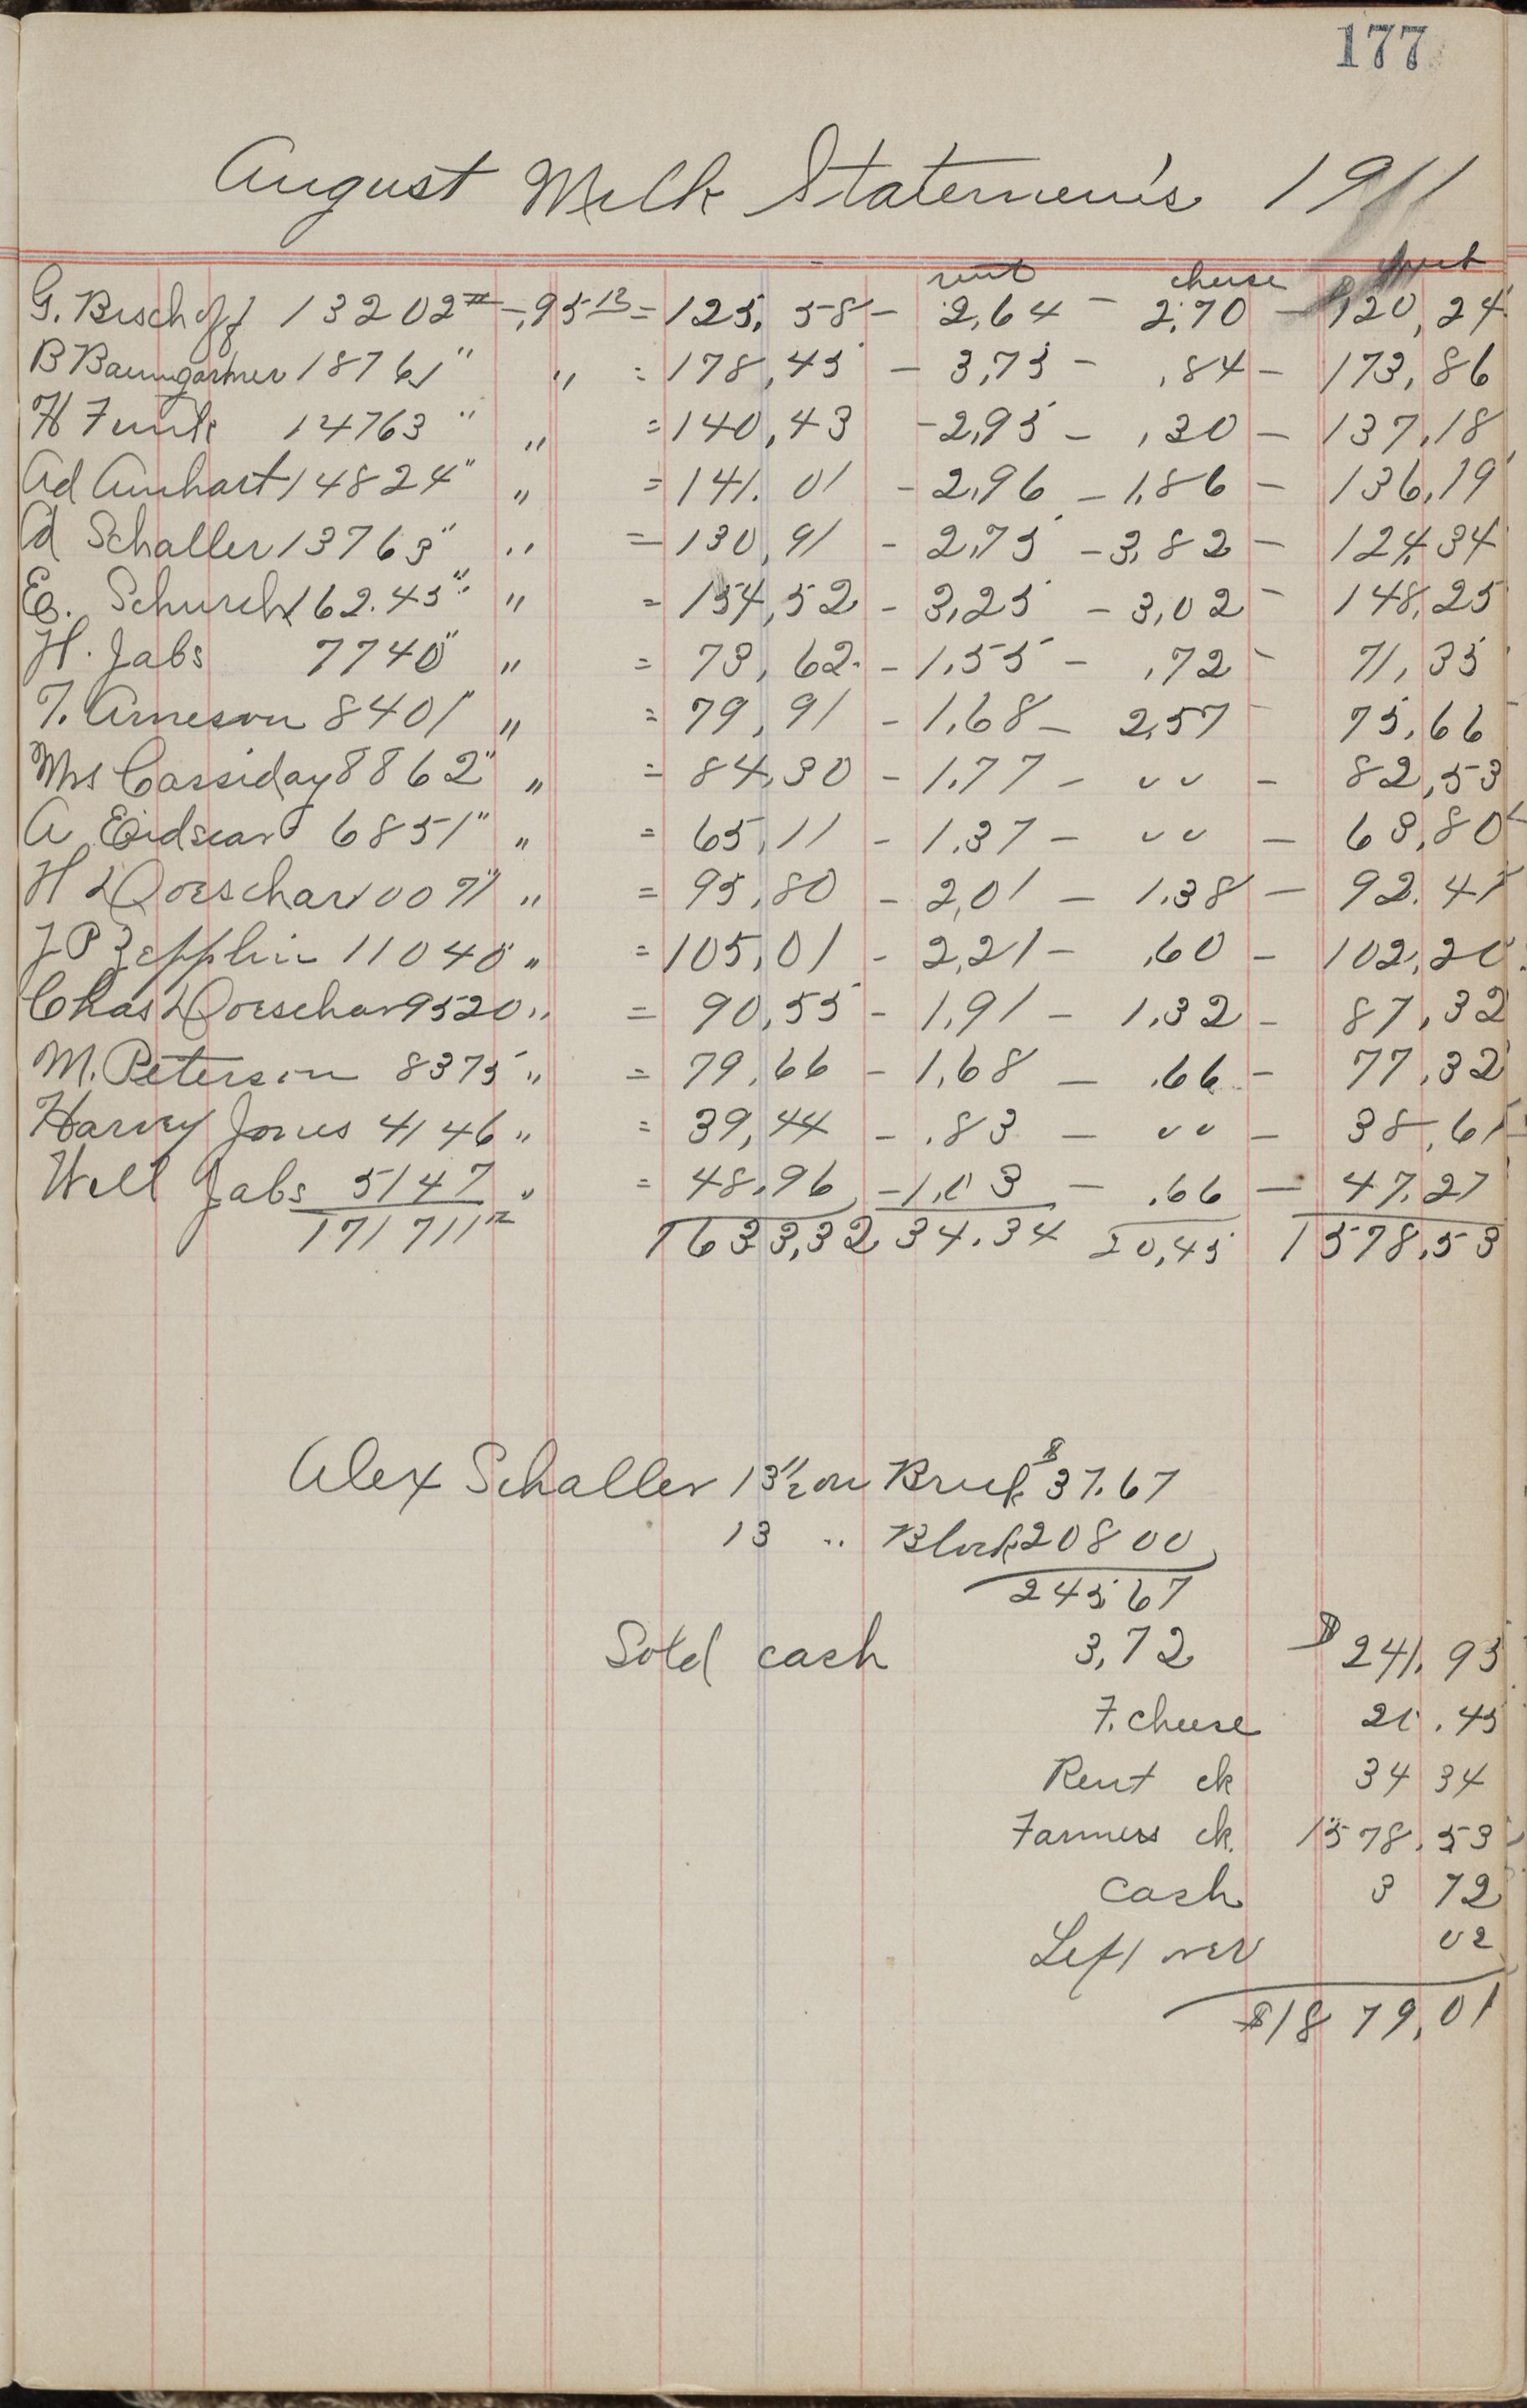 177
August Milk Statemen's 1911
rent cheese
G. Bischoff 13202 # - .95 12 = 125.58 - 2,64 - 2,70 - 120,24
B Baumgartner 18761 " " = 178,45 - 3,75 - ,84 - 173,86
H Funk 14763 " " = 140,43 - 2,95 - ,30 - 137,18
Ad Amhart 14824 " " = 141.01 - 2,96 - 1,86 - 136,19
Ad Schaller 13763 " " = 130,91 - 2,75 - 3,82 - 124,34
Eg. Schurch 162.45 " " = 154,52 - 3,25 - 3,02 - 148,25
H. Jabs 7740 " " = 73,62 - 1,55 - ,72 - 71,35
T. Arneson 8401 " " = 79,91 - 1,68 - 2,57 - 75,66
Mrs Cassiday 8862 " " = 84,30 - 1,77 - " - 82,53
A Eidsear 6851 " " = 65,11 - 1,37 - " - 63,80
H Doeschar 10071 " " = 95,80 - 2,01 - 1,38 - 92.41
J P Zepplin 11040 " = 105,01 - 2,21 - ,60 - 102,20
Chas Doeschar 9520 " = 90,55 - 1,91 - 1,32 - 87,32
M. Peterson 8375 " = 79,66 - 1,68 - .66 - 77,32
Harvey Jones 4146 " = 39,44 - .83 - " - 38,61
Will Jabs 5147 " = 48,96 - 1.03 - .66 - 47,27
171711 # 1633,32 34.34 20,45 1578,53
Alex Schaller 13 1/2 on Brick $37.67
13 " Block 208 00
245,67
Sold cash 3,72 $241,95
F. cheese 20.45
Rent ck 34 34
Farmers ck. 1578.53
Cash 3 72
Left over 02
$1879,01